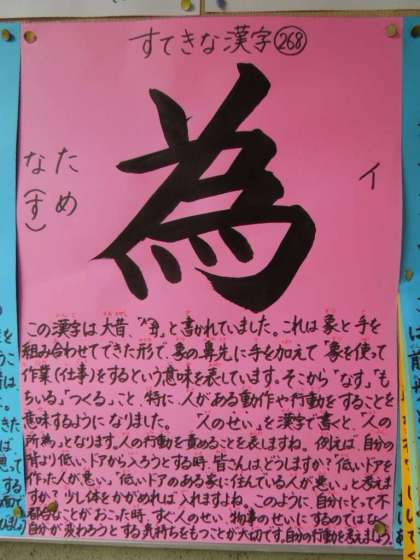 すてきな漢字 268
為
ため
な(す)
イ
この漢字は大昔、" "と書かれていました。これは象と手を
組み合わせてできた形で、象の鼻先に手を加えて「象を使って
作業(仕事)をするという意味を表しています。そこから「なす」「も
ちいる」「つくる」こと、特に、人がある動作や行動をすることを
意味するようになりました。 「人のせい」を漢字で書くと、「人の
所為」となります。人の行動を責めることを表しますね。例えば、自分の
背より低いドアから入ろうとする時、皆さんはどうしますか?「低いドアを
作った人が悪い」「低いドアのある家に住んでいる人が悪い」と考え
ますか?少し体をかがめれば入れますよね。このように、自分にとって不
都合なことがおこった時、すぐ人のせい、物事のせいにするのではなく、
自分が変わろうとする気持ちをもつことが大切です。自分の行動を考えましょう